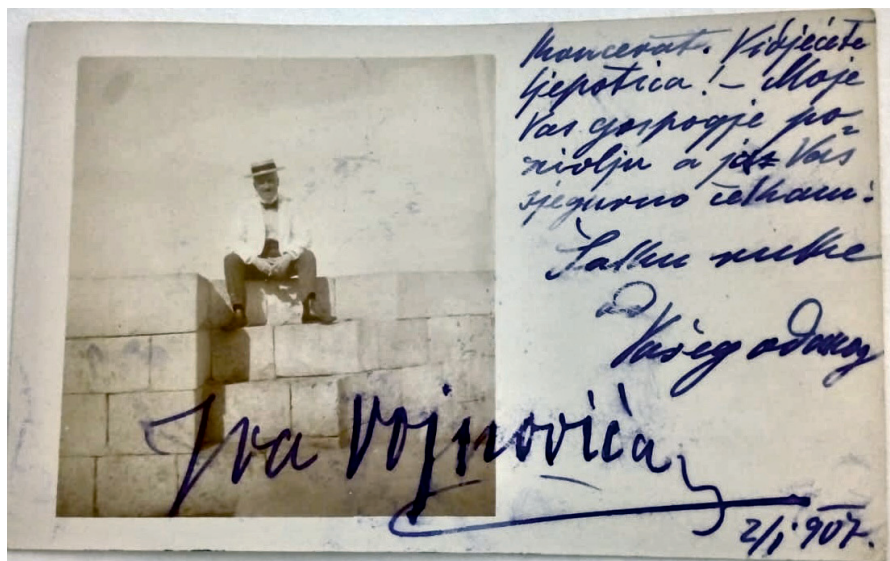 koncerat. Vidjećete
ljepotica! – Moje
Vas gospogje po-
a jaz Vas
sjegurno čekam:
Šalku ruke
od
Vašeg odanog
Iva Vojnovića
2/I 907.